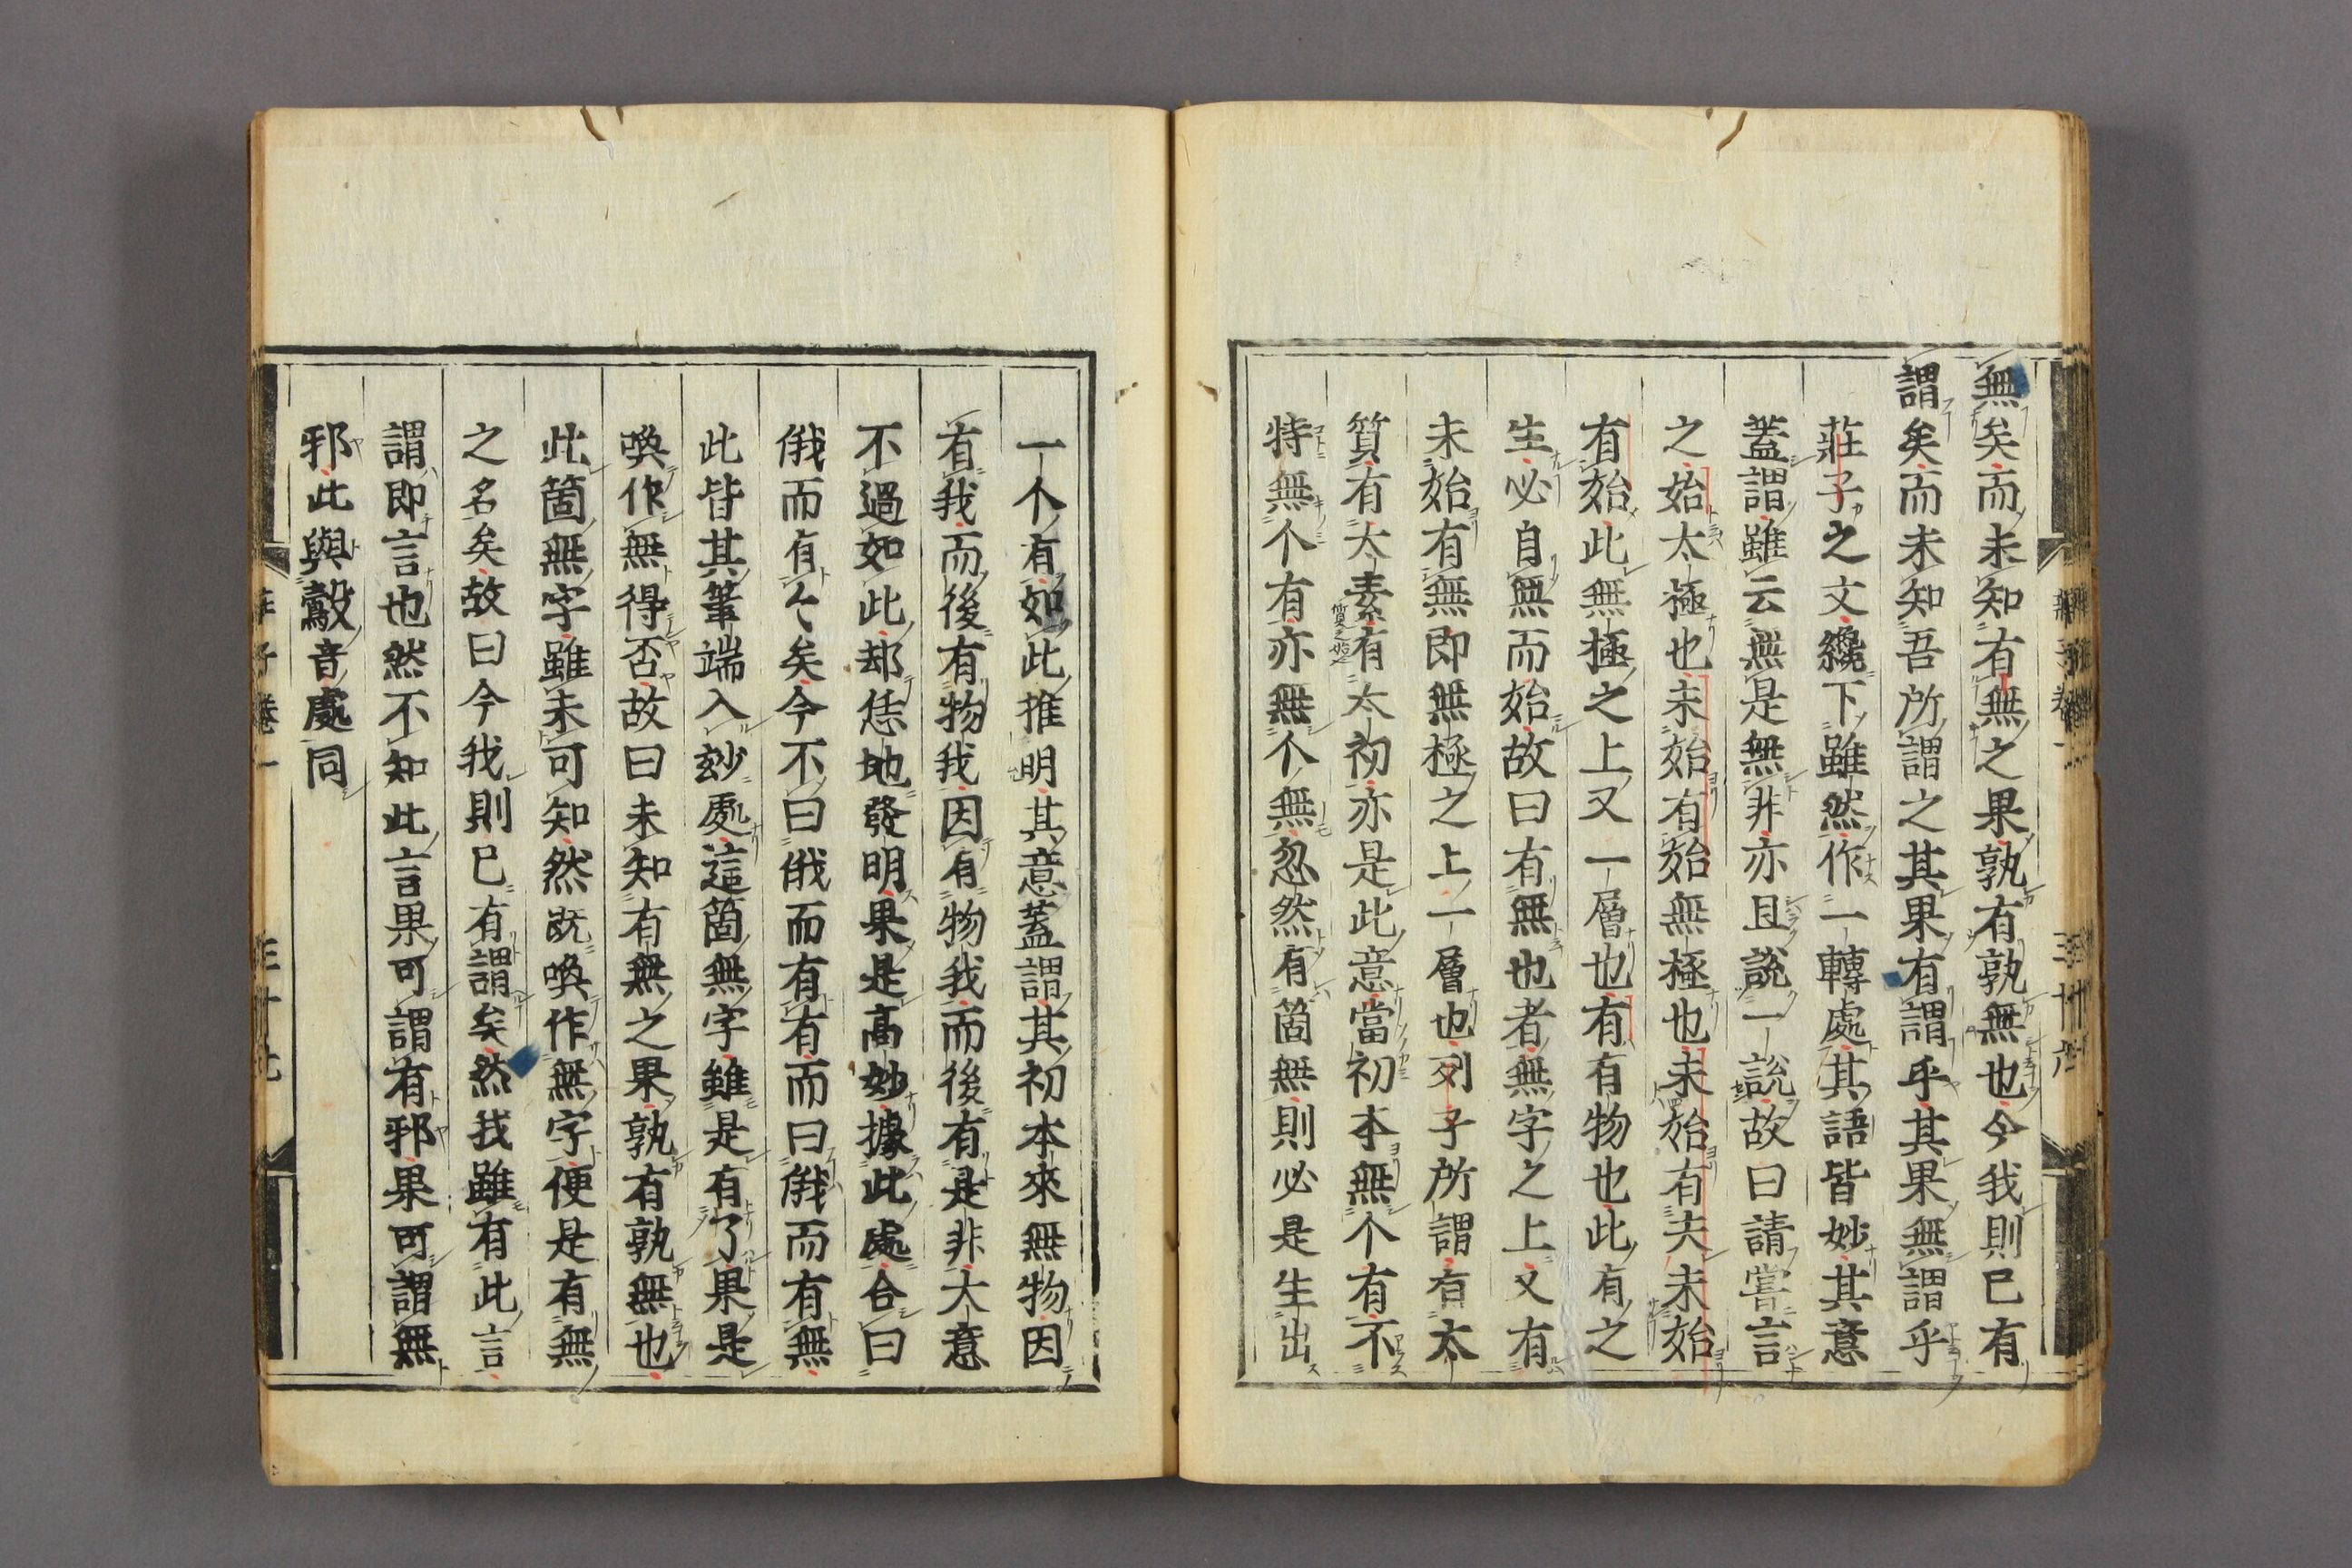 無矣而未知有無之果孰有孰無也今我則已有
謂矣而未知吾所謂之其果有謂乎其果無謂乎
莊子之文纔下雖然作一轉處其語皆妙其意
蓋謂雖云無是無非亦且說一說故曰請嘗言
之始太極也未始有始無極也未始有夫未始
有始此無極之上又一層也有有物也此有之
生必自無而始故曰有無也者無字之上又有
未始有無即無極之上一層也列子所謂有太
質有太素有太初亦是此意當初本無个有不
特無个有亦無个無忽然有箇無則必是生出
一个有如此推明其意蓋謂其初本來無物因
有我而後有物我因有物我而後有是非大意
不過如此却恁地發明果是高妙據此處合曰
俄而有〻矣今不曰俄而有有而曰俄而有無
此皆其筆端入玅處這箇無字雖是有了果是
喚作無得否故曰未知有無之果孰有孰無也
此箇無字雖未可知然既喚作無字便是有無
之名矣故曰今我則已有謂矣然我雖有此言
謂即言也然不知此言果可謂有邪果可謂無
邪此與鷇音處同